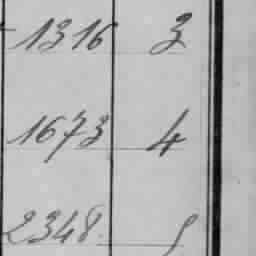 1316 3
1673 4
2348